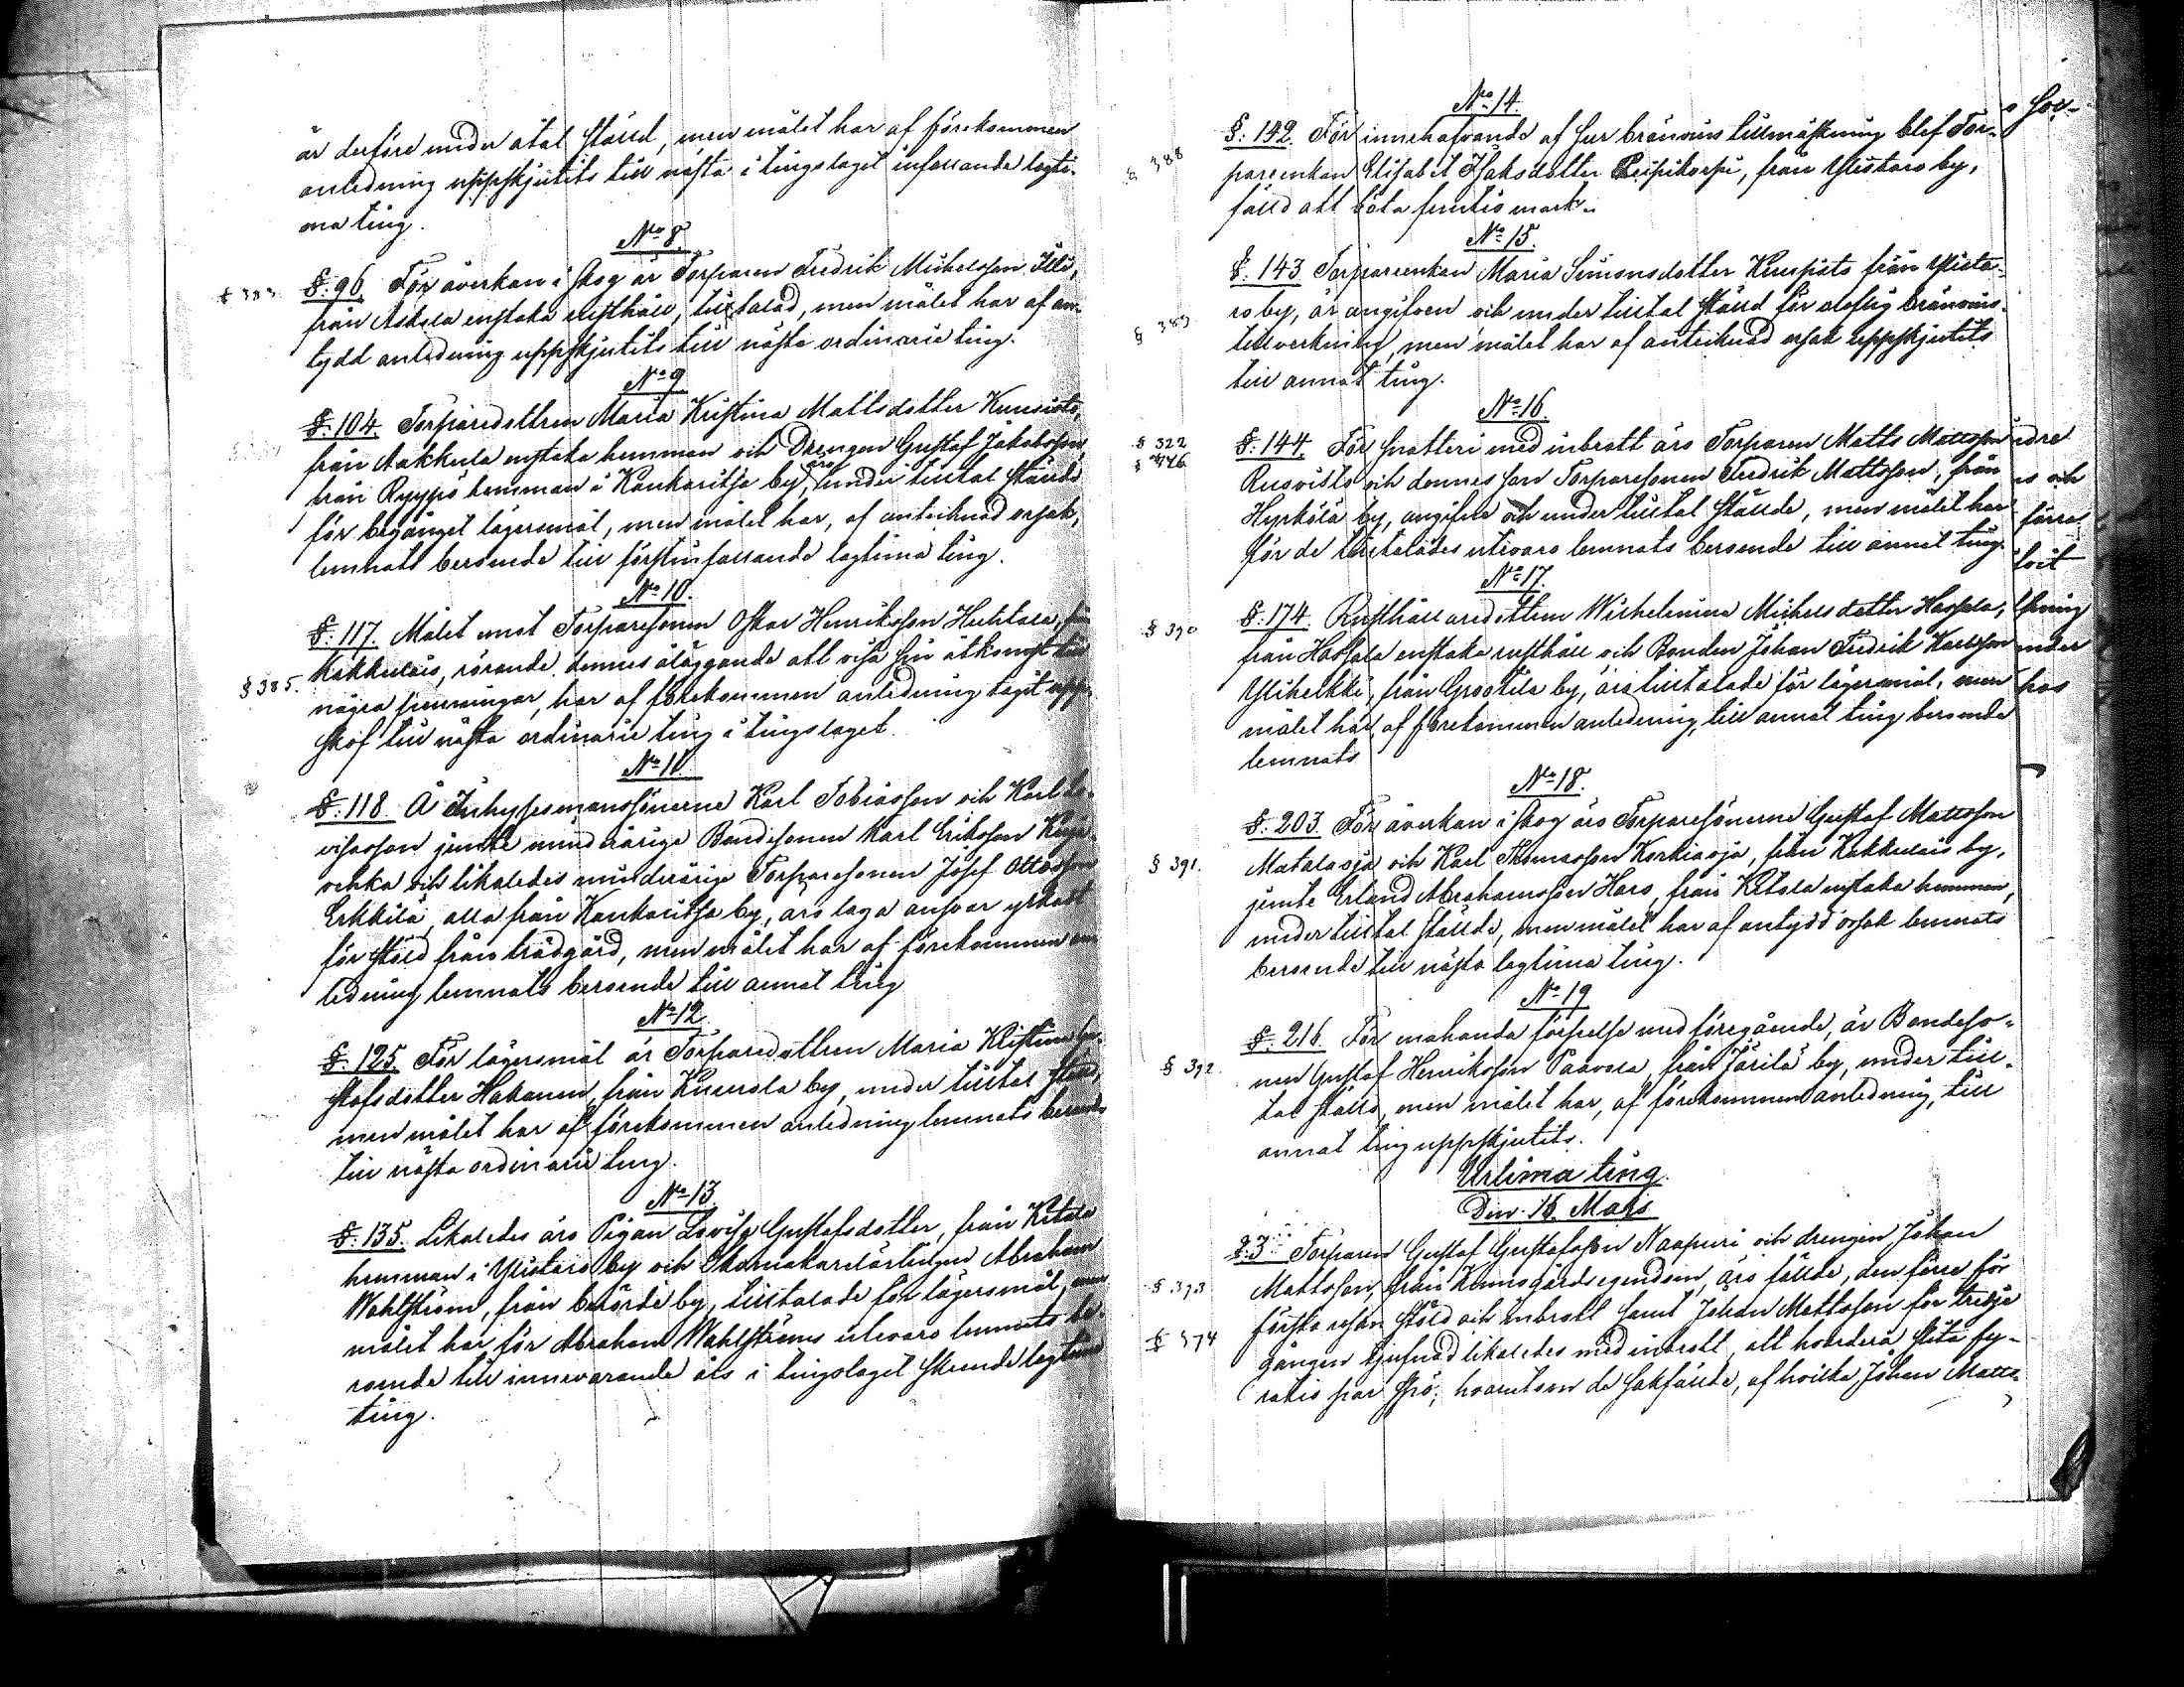 är derföre under åtal stäld, men målet har af förekommen
anledning uppskjutits till nästa i tingslaget infallande lagti-
ma ting.
No 8.
§ 383. §. 96. För åverkan i skog är Torparen Fredrik Michelsson Illi,
från Askola enstaka rusthåll, tilltalad, men målet har af an-
tydd anledning uppskjutits till nästa ordinarie ting.
No 9
§. 104. Torparedottren Maria Kristina Mattsdotter Kunnisto,
från Aakkula enstaka hemman och Drengen Gustaf Jakobsson,
från Ryyppö hemman i Kankaritsa by, äro under tilltal stälde
för begånget lägersmål, men målet har, af antecknad orsak,
lemnats beroende till förstinfallande lagtima ting.
No 10.
§. 117. Målet emot Torparesonen Oskar Henriksson Huhtala, från
§ 385. Kakkulais, rörande dennes åläggande att visa sin åtkomst till
några penningar, har af förekommen anledning tagit upp-
skof till nästa ordinarie ting i tingslaget.
No 11.
§. 118 Å Inhysesmanssönerne Karl Tobiasson och Karl Lo-
visasson jemte minderårige Bondesonen Karl Eriksson
och likaledes minderårige Torparesonen Josef Ottosson
Erkkilä, alla från Kankaritsa by, äro laga ansvar yrkadt
för stöld från trädgård, men målet har af förekommen an-
ledning lemnats beroende till annat ting
No 12
§. 125. För lägersmål är Torparedottren Maria Kristina Gu-
stafsdotter Hakanen, från Kuurola by, under tilltal stäld,
men målet har af förekommen anledning lemnats beroende
till nästa ordinarie ting.
No 13.
§. 135. Likaledes äro Pigan Lovisa Gustafsdotter, från Kitala
hemman i Ylistaro by och Skomakarelärlingen Abraham
Wahlström, från by, tilltalade för lägersmål, men
målet har för Abraham Wahlströms utevaro lemnats be-
roende till innevarande års i tingslaget skeende lagtima
ting.
No 14.
§ 388 §. 142. För innehafvande af för bränvins tillmäskning blef Tor-
parenkan Elisabet Isaksdotter Peipikorpi, från Ylistaro by,
fälld att böta femtio mark.
No 15.
§. 143. Torparenkan Maria Simonsdotter Kuusisto från Ylista-
§ 389 ro by, är angifven och under tilltal stäld för olaflig bränvins-
tillverkning, men målet har af antecknad orsak uppskjutits
till annat ting.
No 16.
§ 322 §. 144. För snatteri med inbrott äro Torparen Matts Mattsson
§ 446 Rusvisto och dennes son Torparesonen Fredrik Mattsson, från
Hyrkölä by, angifne och under tilltal stälde, men målet har
för de tilltalades utevaro lemnats beroende till annat ting.
No 17.
§ 390 §. 174. Rusthållaredottren Wilhelmina Michelsdotter Hassala,
från Hassala enstaka rusthåll och Bonden Johan Fredrik Karlsson
Ylihelkki, från Grootila by, äro tilltalade för lägersmål, men
målet har, af förekommen anledning, till annat ting beroende
lemnats
No 18.
§. 203. För åverkan i skog äro Torparesönerne Gustaf Mattsson
§ 391. Mataraoja och Karl Thomasson Korkiaoja, från Kakkulais by,
jemte Erland Abrahamsson Haro, från Kitola enstaka hemman,
under tilltal stälde, men målet har af antydd orsak lemnats
beroende till nästa lagtima ting.
No 19
§. 216. För mahanda förseelse med föregående, är Bondeso-
§ 392 nen Gustaf Henriksson Paavola, från Järilä by, under till-
tal stäld, men målet har, af förekommen anledning, till
annat ting uppskjutits.
Urtima ting.
Den 15. Mars
§. 3 Torparen Gustaf Gustafsson Naapuri och drengen Johan
§ 393 Mattsson, från Kumogårds egendom, äro fällde, den förre för
första resan stöld och inbrott samt Johan Mattsson för tredje
§ 394 gången tjufnad likaledes med inbrott, att hvardera slita fy-
ratio par spö; hvarutom de sakfällde, af hvilka Johan Matts-